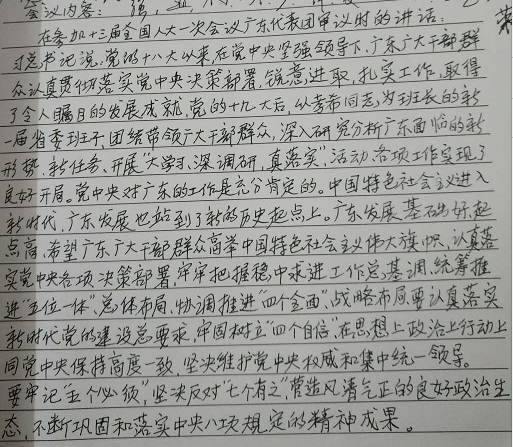 会议内容:
在参加十三届全国人大一次会议广东代表团审议时的讲话:
习总书记说,党的十八大以来,在党中央坚强领导下,广东广大干部群
众认真贯彻落实党中央决策部署,锐意进取,扎实工作,取得
了令人瞩目的发展成就,党的十九大后,以李希同志为班长的新
一届省委班子,团结带领广大干部群众,深入研究分析广东面临的新
形势、新任务、开展“大学习、深调研、真落实”活动,各项工作实现了
良好开局。党中央对广东的工作是充分肯定的。中国特色社会主义进入
新时代,广东发展也站到了新的历史起点上。广东发展基础好,起
点高,希望广东广大干部群众高举中国特色社会主义伟大旗帜,认真落
实党中央各项决策部署,牢牢把握稳中求进工作总基调,统筹推
进“五位一体”总体布局,协调推进“四个全面”战略布局,要认真落实
新时代党的建设总要求,牢固树立“四个自信”,在思想上政治上行动上
同党中央保持高度一致,坚决维护党中央权威和集中统一领导。
要牢记“五个必须”,坚决反对“七个有之”,营造风清气正的良好政治生
态,不断巩固和落实中央八项规定的精神成果。